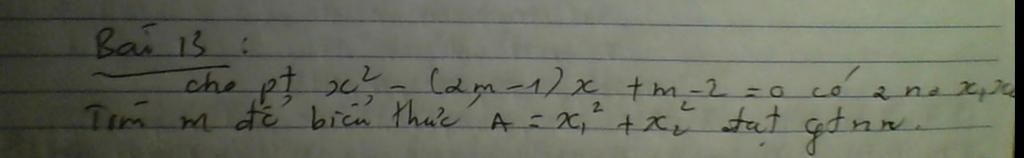 Bài 13 :
cho pt x² - (2m-1)x + m-2 = 0 có 2 no x₁x₂
Tìm m để biểu thức A = x₁² + x₂² đạt gtnn.